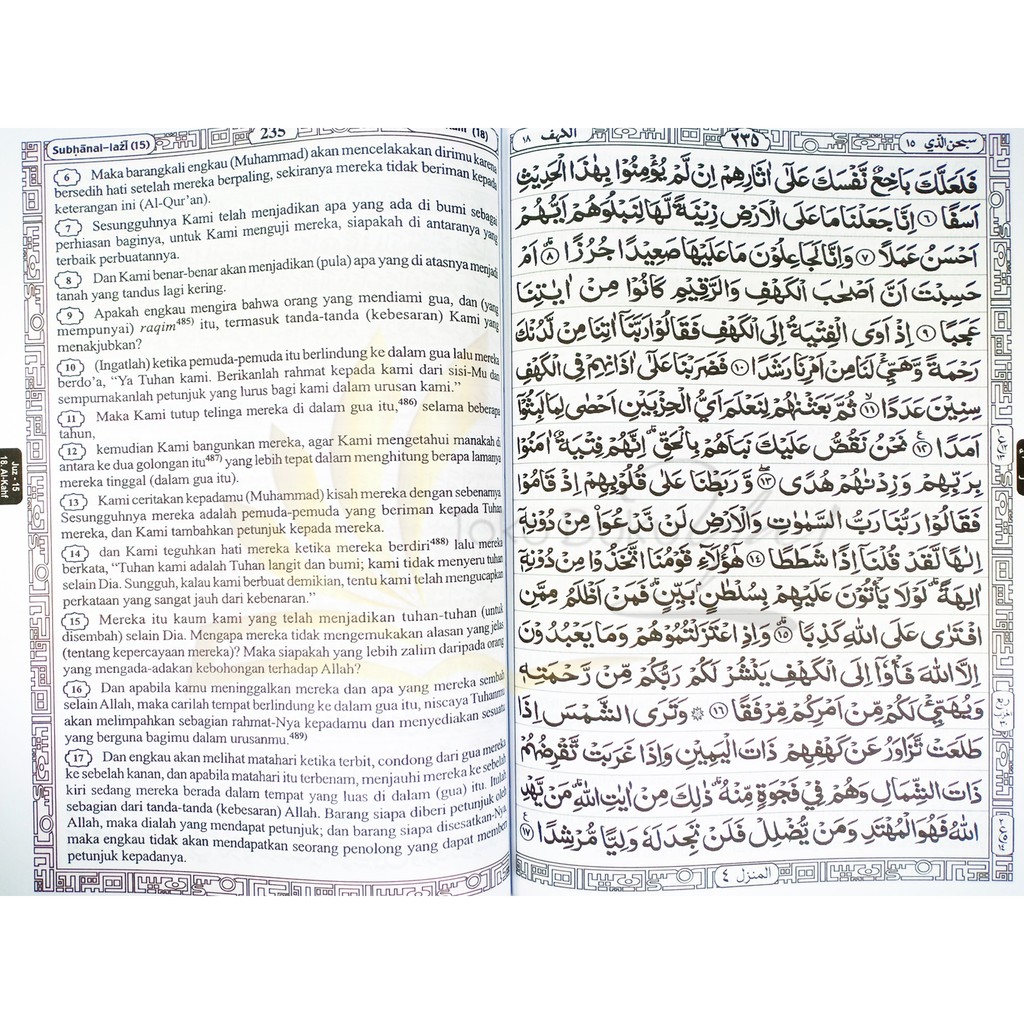 Subḥānal-lażī (15)
235
(18)
6 Maka barangkali engkau (Muhammad) akan mencelakakan dirimu karena
bersedih hati setelah mereka berpaling, sekiranya mereka tidak beriman kepada
keterangan ini (Al-Qur'an).
7 Sesungguhnya Kami telah menjadikan apa yang ada di bumi sebagai
perhiasan baginya, untuk Kami menguji mereka, siapakah di antaranya yang
terbaik perbuatannya.
8 Dan Kami benar-benar akan menjadikan (pula) apa yang di atasnya menjadi
tanah yang tandus lagi kering.
9 Apakah engkau mengira bahwa orang yang mendiami gua, dan (yang
mempunyai) raqim485) itu, termasuk tanda-tanda (kebesaran) Kami yang
menakjubkan?
10 (Ingatlah) ketika pemuda-pemuda itu berlindung ke dalam gua lalu mereka
berdo'a, "Ya Tuhan kami. Berikanlah rahmat kepada kami dari sisi-Mu dan
sempurnakanlah petunjuk yang lurus bagi kami dalam urusan kami."
11 Maka Kami tutup telinga mereka di dalam gua itu,486) selama beberapa
tahun,
12 kemudian Kami bangunkan mereka, agar Kami mengetahui manakah di
antara ke dua golongan itu487) yang lebih tepat dalam menghitung berapa lamanya
mereka tinggal (dalam gua itu).
13 Kami ceritakan kepadamu (Muhammad) kisah mereka dengan sebenarnya.
Sesungguhnya mereka adalah pemuda-pemuda yang beriman kepada Tuhan
mereka, dan Kami tambahkan petunjuk kepada mereka.
14 dan Kami teguhkan hati mereka ketika mereka berdiri488) lalu mereka
berkata, "Tuhan kami adalah Tuhan langit dan bumi; kami tidak menyeru tuhan
selain Dia. Sungguh, kalau kami berbuat demikian, tentu kami telah mengucapkan
perkataan yang sangat jauh dari kebenaran."
15 Mereka itu kaum kami yang telah menjadikan tuhan-tuhan (untuk
disembah) selain Dia. Mengapa mereka tidak mengemukakan alasan yang jelas
(tentang kepercayaan mereka)? Maka siapakah yang lebih zalim daripada orang
yang mengada-adakan kebohongan terhadap Allah?
16 Dan apabila kamu meninggalkan mereka dan apa yang mereka sembah
selain Allah, maka carilah tempat berlindung ke dalam gua itu, niscaya Tuhanmu
akan melimpahkan sebagian rahmat-Nya kepadamu dan menyediakan sesuatu
yang berguna bagimu dalam urusanmu.489)
17 Dan engkau akan melihat matahari ketika terbit, condong dari gua mereka
ke sebelah kanan, dan apabila matahari itu terbenam, menjauhi mereka ke sebelah
kiri sedang mereka berada dalam tempat yang luas di dalam (gua) itu. Itulah
sebagian dari tanda-tanda (kebesaran) Allah. Barang siapa diberi petunjuk oleh
Allah, maka dialah yang mendapat petunjuk; dan barang siapa disesatkan-Nya,
maka engkau tidak akan mendapatkan seorang penolong yang dapat memberi
petunjuk kepadanya.
Juz - 15
18. Al-Kahf
سبحن الذي ١٥
٢٣٥
الكهف ١٨
فَلَعَلَّكَ بَاخِعٌ نَّفْسَكَ عَلٰٓى اٰثَارِهِمْ اِنْ لَّمْ يُؤْمِنُوْا بِهٰذَا الْحَدِيْثِ
اَسَفًا ٦ اِنَّا جَعَلْنَا مَا عَلَى الْاَرْضِ زِيْنَةً لَّهَا لِنَبْلُوَهُمْ اَيُّهُمْ
اَحْسَنُ عَمَلًا ٧ وَاِنَّا لَجَاعِلُوْنَ مَا عَلَيْهَا صَعِيْدًا جُرُزًا ۗ ٨ اَمْ
حَسِبْتَ اَنَّ اَصْحٰبَ الْكَهْفِ وَالرَّقِيْمِ كَانُوْا مِنْ اٰيٰتِنَا
عَجَبًا ٩ اِذْ اَوَى الْفِتْيَةُ اِلَى الْكَهْفِ فَقَالُوْا رَبَّنَآ اٰتِنَا مِنْ لَّدُنْكَ
رَحْمَةً وَّهَيِّئْ لَنَا مِنْ اَمْرِنَا رَشَدًا ١٠ فَضَرَبْنَا عَلٰٓى اٰذَانِهِمْ فِى الْكَهْفِ
سِنِيْنَ عَدَدًا ۙ ١١ ثُمَّ بَعَثْنٰهُمْ لِنَعْلَمَ اَيُّ الْحِزْبَيْنِ اَحْصٰى لِمَا لَبِثُوْٓا
اَمَدًا ࣖ ١٢ نَحْنُ نَقُصُّ عَلَيْكَ نَبَاَهُمْ بِالْحَقِّۗ اِنَّهُمْ فِتْيَةٌ اٰمَنُوْا
بِرَبِّهِمْ وَزِدْنٰهُمْ هُدًى ۖ ١٣ وَّرَبَطْنَا عَلٰى قُلُوْبِهِمْ اِذْ قَامُوْا
فَقَالُوْا رَبُّنَا رَبُّ السَّمٰوٰتِ وَالْاَرْضِ لَنْ نَّدْعُوَا۟ مِنْ دُوْنِهٖٓ
اِلٰهًا لَّقَدْ قُلْنَآ اِذًا شَطَطًا ١٤ هٰٓؤُلَاۤءِ قَوْمُنَا اتَّخَذُوْا مِنْ دُوْنِهٖٓ
اٰلِهَةًۗ لَوْلَا يَأْتُوْنَ عَلَيْهِمْ بِسُلْطٰنٍۢ بَيِّنٍۗ فَمَنْ اَظْلَمُ مِمَّنِ
افْتَرٰى عَلَى اللّٰهِ كَذِبًاۗ ١٥ وَاِذِ اعْتَزَلْتُمُوْهُمْ وَمَا يَعْبُدُوْنَ
اِلَّا اللّٰهَ فَأْوٗٓا اِلَى الْكَهْفِ يَنْشُرْ لَكُمْ رَبُّكُمْ مِّنْ رَّحْمَتِهٖ
وَيُهَيِّئْ لَكُمْ مِّنْ اَمْرِكُمْ مِّرْفَقًا ١٦ ۞ وَتَرَى الشَّمْسَ اِذَا
طَلَعَتْ تَّزَاوَرُ عَنْ كَهْفِهِمْ ذَاتَ الْيَمِيْنِ وَاِذَا غَرَبَتْ تَّقْرِضُهُمْ
ذَاتَ الشِّمَالِ وَهُمْ فِيْ فَجْوَةٍ مِّنْهُۗ ذٰلِكَ مِنْ اٰيٰتِ اللّٰهِۗ مَنْ يَّهْدِ
اللّٰهُ فَهُوَ الْمُهْتَدِ وَمَنْ يُّضْلِلْ فَلَنْ تَجِدَ لَهٗ وَلِيًّا مُّرْشِدًا ࣖ ١٧
المنزل ٤